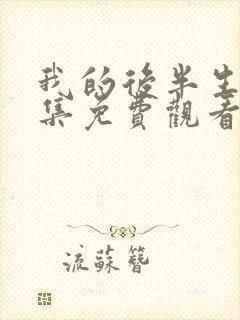 我的後半生
集免費觀看
流蘇簪